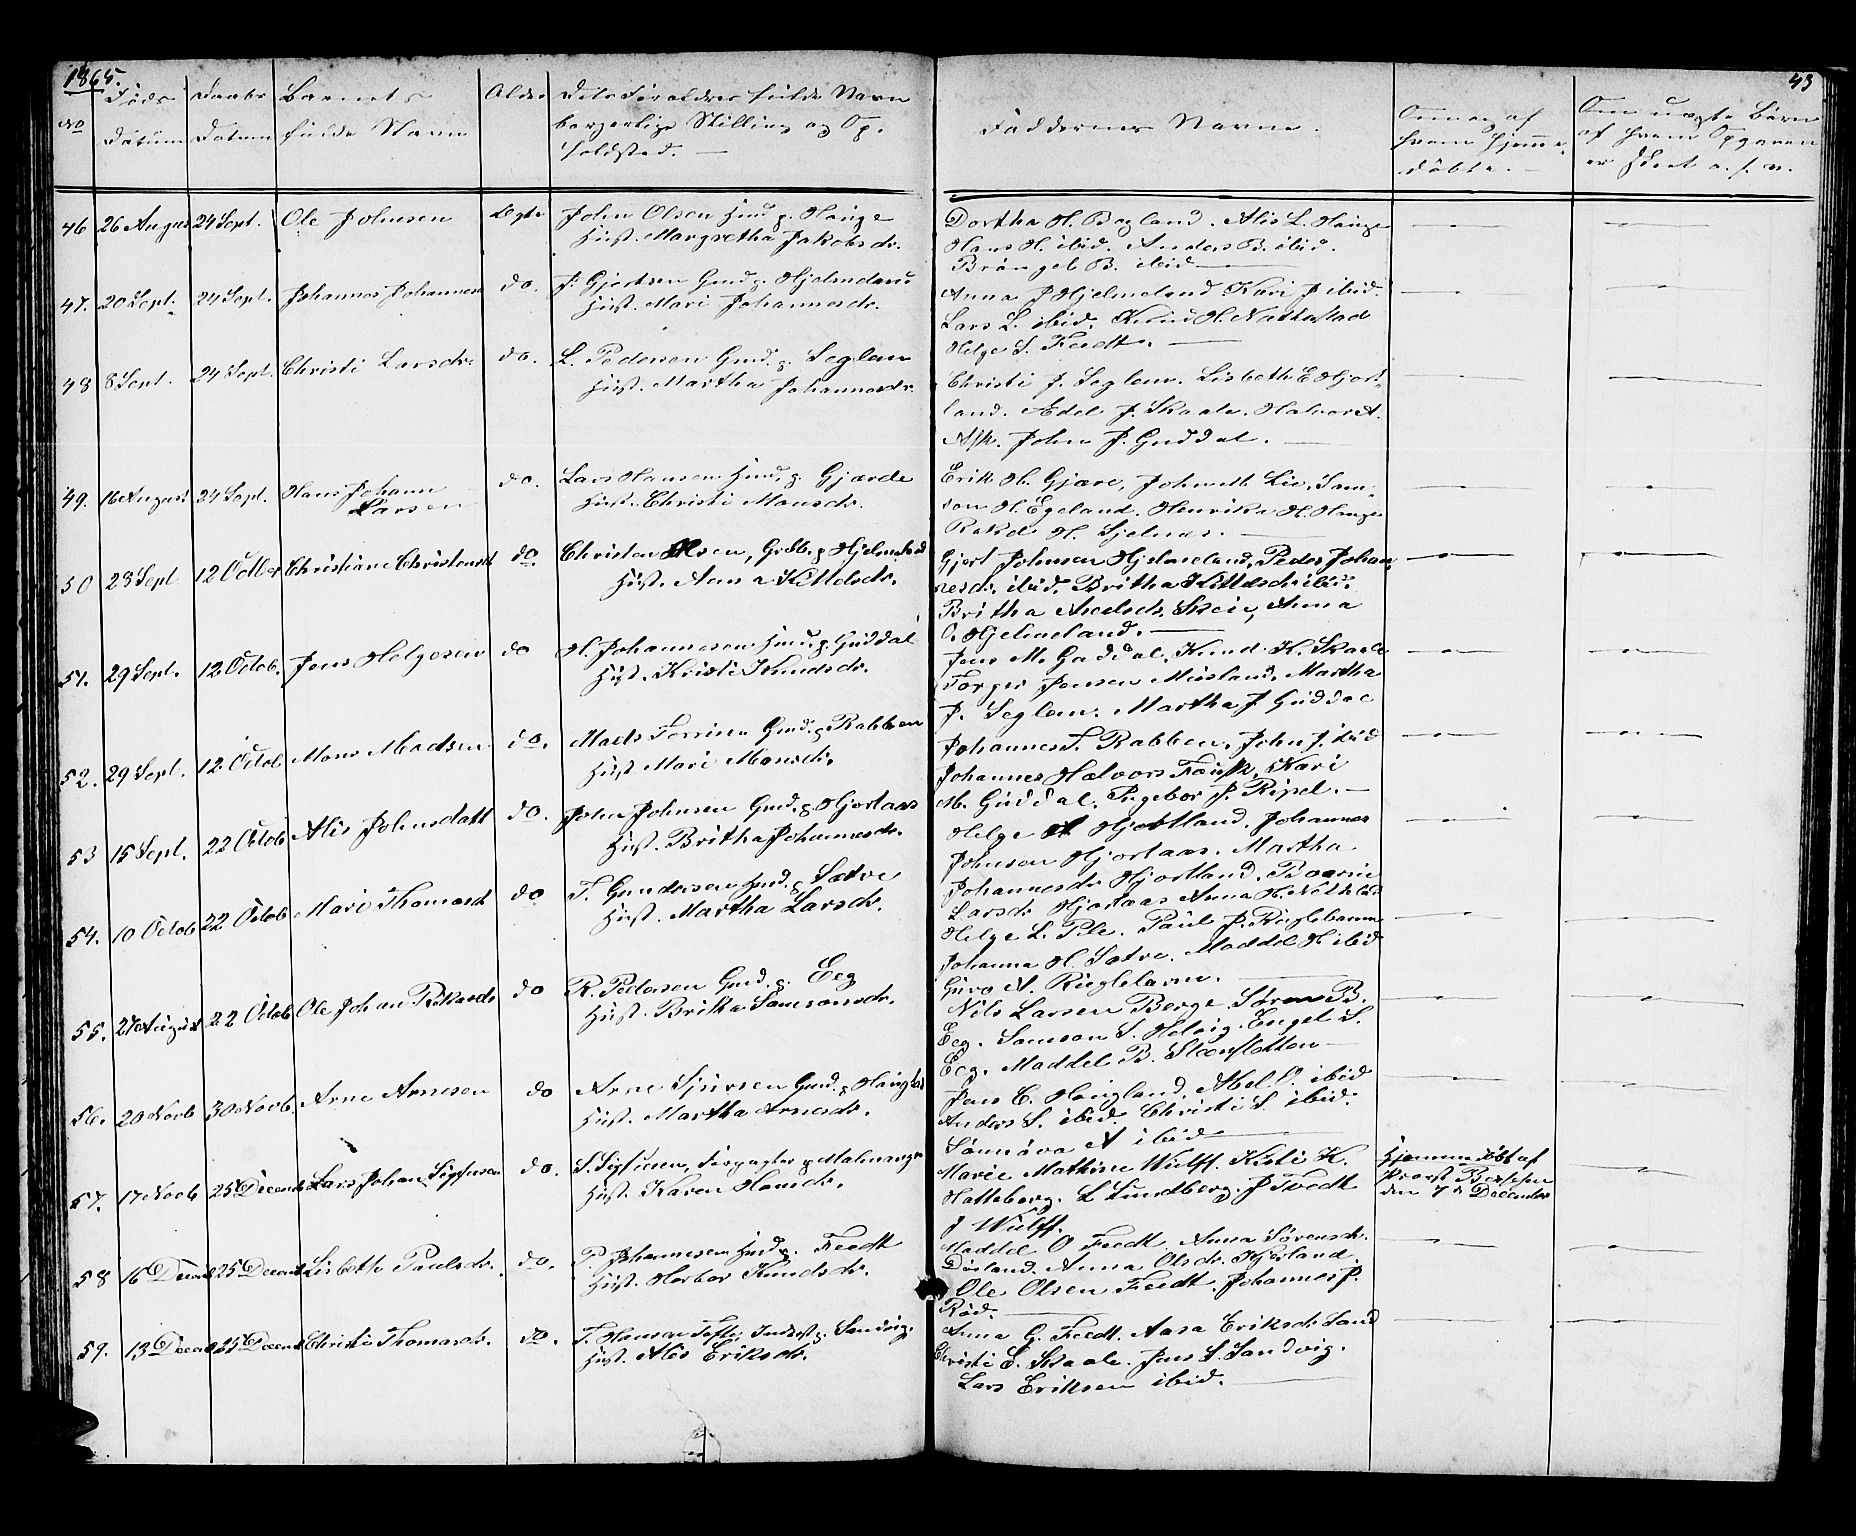 1865.
43
No
Føds
Datum
Daabs
Datum
Barnets
fulde Navn
Dets Forældres fulde Navn
borgerlige Stilling og Op-
holdsted. —
Faddernes Navne.
Om og af
hvem hjemme-
døbte. —
Om uægte Børn
af hvem Opgaven
er skeet o. s. v.
46 26 August 24 Sept. Ole Johnsen Ægte John Olsen Gmd. p. Hauge
Hust. Margretha Jakobsdr.
Dortha H. Bagland. Alis L. Hauge
Hans H. ibid. Anders B. ibid.
Brøngel B. ibid
47. 20 Sept. 24 Sept. Johannes Johannesen do. J. Gjertsen Gmd. p. Hjelmeland
Hust. Mari Johannesdr.
Anna J Hjelmeland Kari J ibid.
Lars L. ibid. Knud H. Nattestad
Helge S. Feedt.
48 8 Sept. 24 Sept. Christi Larsdr. do. L. Pedersen Gmd. p. Seglem
Hust. Martha Johannesdr.
Christi J. Seglem. Lisbeth E Hjort-
land. Adel J. Skaale. Halvor A.
Ask. John J. Guddal.
49. 16 August 24 Sept. Hans Johann
Larsen
do. Lars Hansen Gmd. p. Gjærde
Hust. Christi Monsdr.
Erik H. Gjære, Johneth Lio, Sam-
son H. Egeland. Henrika H. Hauge
H. Sjelnes.
50 23 Sept 12 Octber Christiane Christensdt do Christen Olsen, Grdb. p Hjelmeland
Hust. Anna Kittelsdr.
Gjert Johnsen Hjelmeland, Peder Johan
nesdr. ibid. Britha Kittelsdr ibid.
Britha Axelsdr. Skeie, Anna
O. Hjelmeland.
51. 29 Sept. 12 Octob. Jens Helgesen do H. Johannesen Gmd. p Guddal
Hust. Kristi Knudsdr.
Jens M. Guddal. Knud H. Skaale
Torger Jensen Miesland. Martha
J. Seglem. Martha J Guddal
52. 29 Sept. 12. Octob. Mons Madsen do. Mads Gmd. p Rabben
Hust Mari Monsdr.
Johannes T. Rabben. John J. ibid
Johannes Halvors Kari
M. Guddal. Ingebor J. Ripel.
53 15 Sept. 22 Octob Alis Johnsdatt do. John Johnsen Gmd. p Hjortaas
Hust. Britha Johannesdr.
Helge A Hjortland. Johannes
Johnsen Hjortaas. Martha
Johannesdr Hjortland.
Larsdr Hjortaas Anna H.
54. 10 Octob 22 Octob Mari Thomasdt do T. Gundersen Gmd. p Sætre
Hust. Martha Larsdr.
Helge L. Paul J. Ruglebarm
Johanna H. Sætre. Maddel H ibid
Guro A. Ruglebarm.
55. 27 August 22 Octob Ole Johan do R. Pedersen Gmd. p. Eeg
Hust. Britha Samsonsdr.
Nils Larsen Berge. Søren B.
Eeg. Samson S. Helvig. Engel S.
Eeg. Maddel B. Steensletten
56. 20 Novb 30 Novb. Arne Arnesen do Arne Sjursen Gmd. p Haugland
Hust. Martha Arnesdr.
Jens E. Haugland. Abel O. ibid
Anders S. ibid. Christi S. ibid.
Sønnøva A ibid
57. 17 Novb 25 Decemb Lars Johan Sigfusen do. S. Sigfusen, Forpagter p Malmanger
Hust. Karen Hansdr.
Marie Mathine Wulff. Kisti K.
Hatteberg. L Lundberg. J Tvedt
J Wulff.
Hjemmedøbt af
Provst
den 7de December
58 16 Decemb 25 Decemb Lisbeth Paulsdr. do. P. Johannesen Gmd. p. Feedt
Hust. Herbor Knudsdr.
Maddel O Feedt. Anna Sørensdr.
Anna Olsdr.
Ole Olsen Feedt. Johannes J.
Rød.
59. 13 Decemb 25 Decemb Christi Thomasdr. do. T. Hansen Inderst p. Sandvig.
Hust. Alis Eriksdr.
Anna G. Feedt. Aasa Eriksdr Sand
Christi E. Skaale. Jens S. Sandvig.
Lars Eriksen ibid.